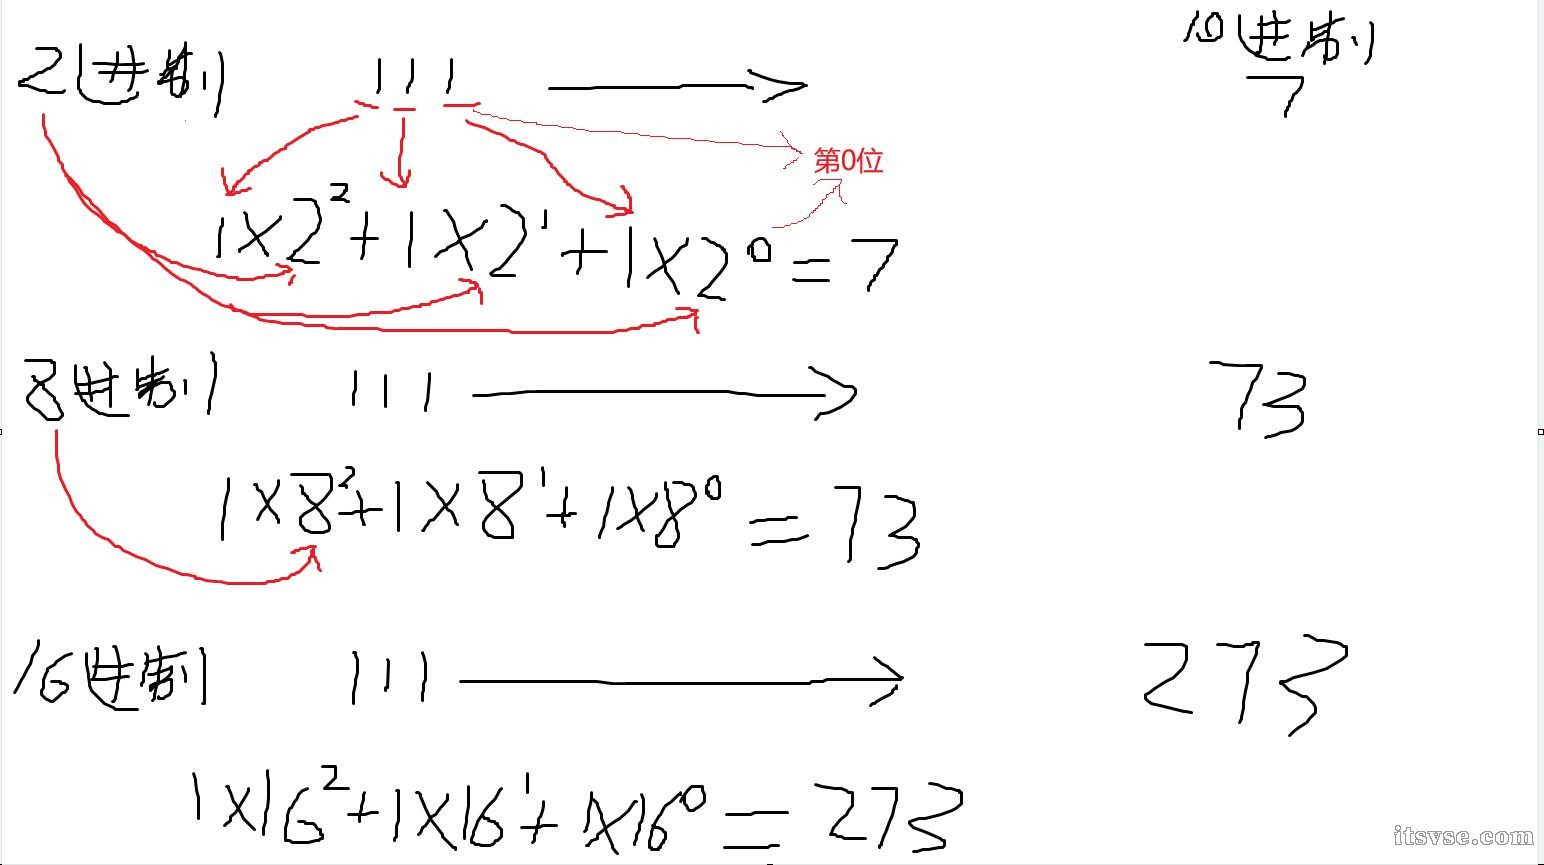 10进制
2进制 111 7
第0位
1×2²+1×2¹+1×2⁰=7
8进制 111 73
1×8²+1×8¹+1×8⁰=73
16进制 111 273
1×16²+1×16¹+1×16⁰=273
itsvse.com